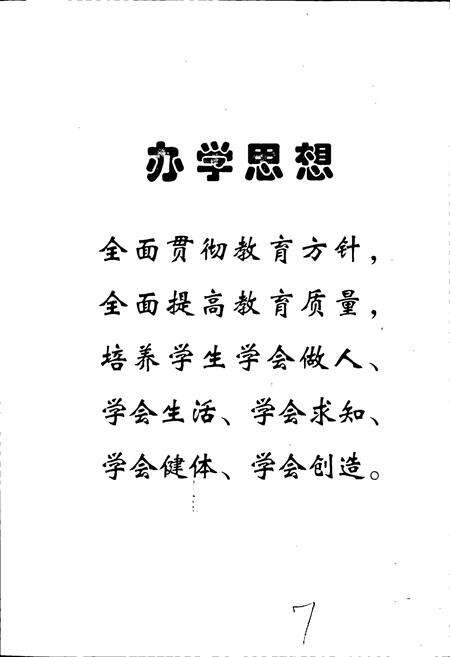 办学思想
全面贯彻教育方针，
全面提高教育质量，
培养学生学会做人、
学会生活、学会求知、
学会健体、学会创造。
7